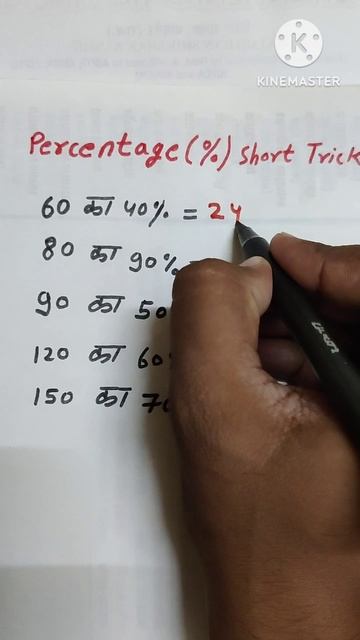 KINEMASTER
Percentage (%) Short Trick
60 का 40% = 24
80 का 90%
90 का 50
120 का 60
150 का 70